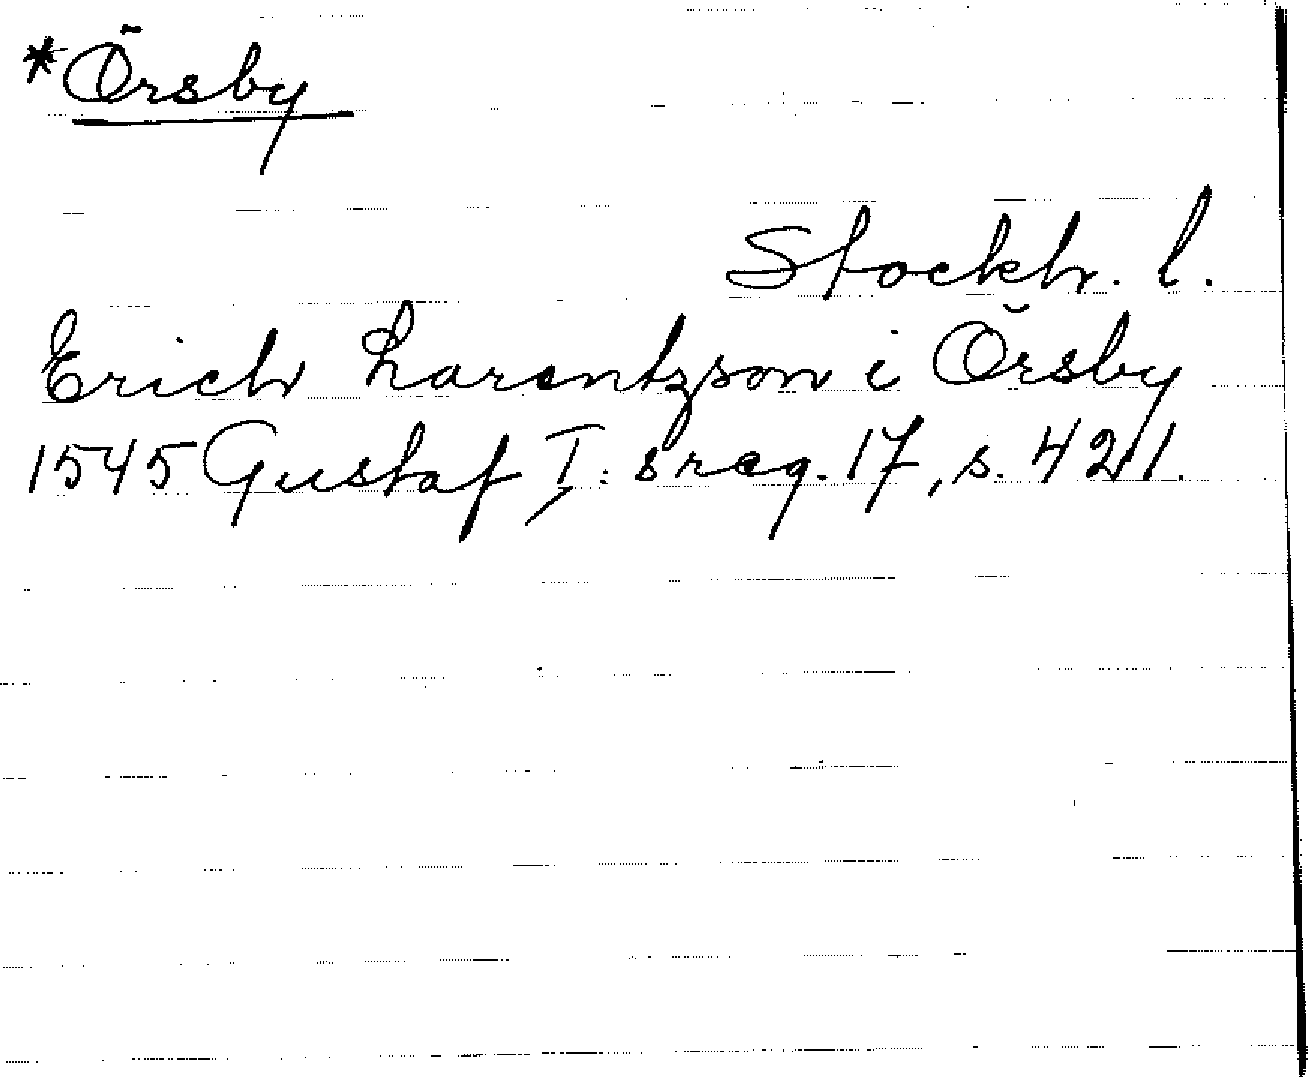 *Örsby
Stockh. l.
Erich Larentzson i Örsby
1545 Gustaf I:s reg. 17, s. 421.